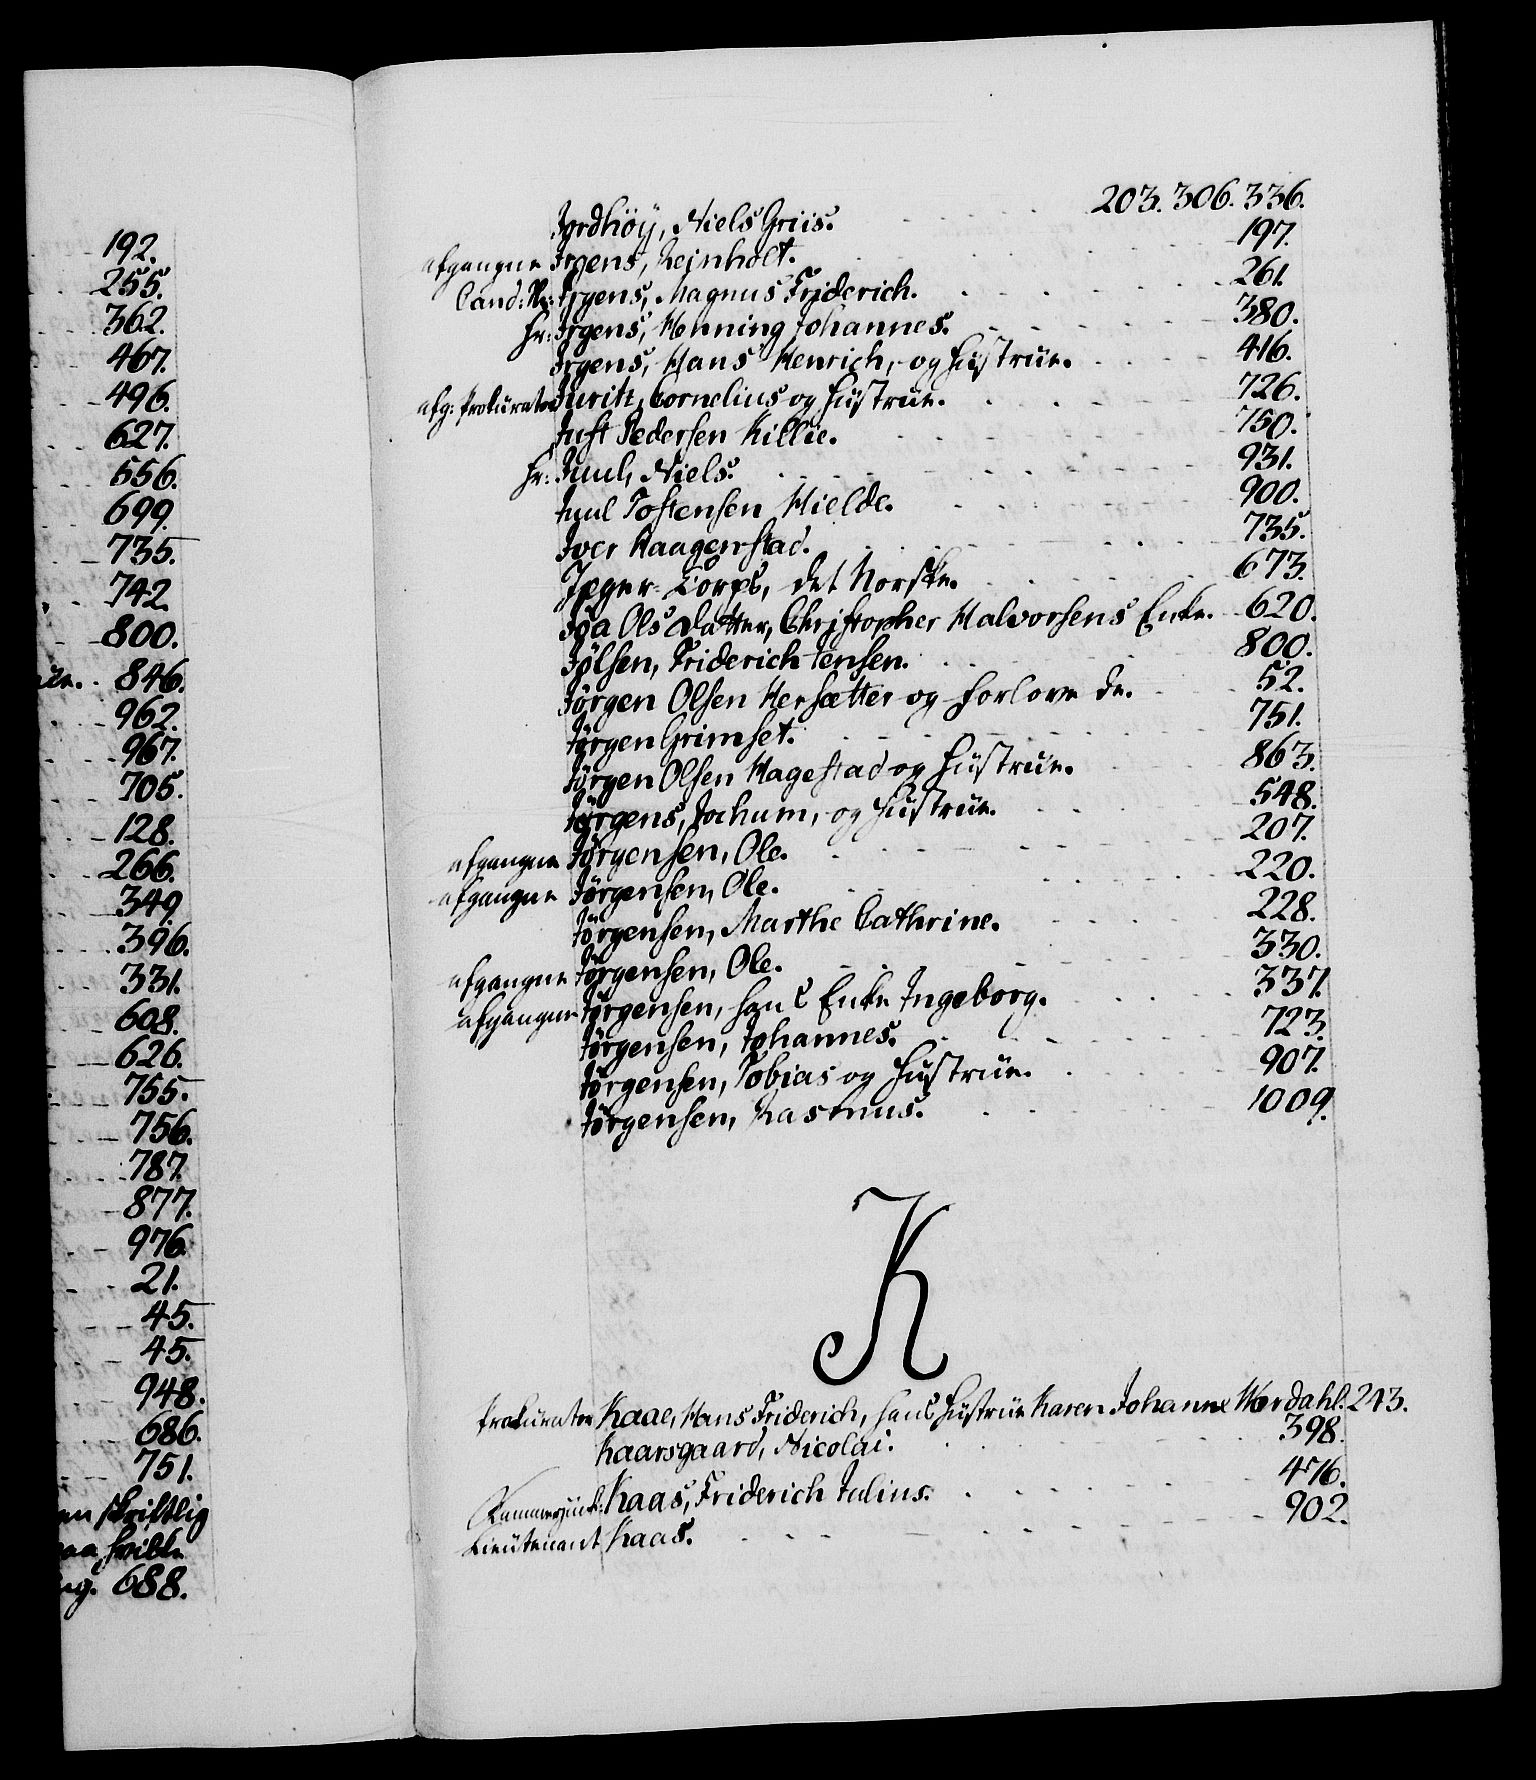 192.
255.
362.
467.
496.
627.
556.
699.
735.
742.
800.
846.
962.
967.
705.
128.
266.
349.
396.
331.
608.
626.
755.
756.
787.
877.
976.
21.
45.
45.
948.
686.
751.
skriftlig
688.
Jordhöy, Niels Griis. 203. 306. 336.
afgangne Irgens, Reinholt. 197.
Cand: Irgens, Magnus Friderich. 261.
Hr: Irgens, Henning Johannes. 380.
Irgens, Hans Henrich, og Hustrue. 416.
afg: Prokurator Juritz, Cornelius og Hustrue. 726.
Just Pedersen Killie. 750.
Hr: Juul, Niels. 931.
Juul Tostensen Hielde. 900.
Iver Haagenstad. 735.
Jæger-Corps, det Norske. 673.
Olsdatter, Christopher Halvorsens Enke. 620.
Jölsen, Friderich Jensen. 800.
Jörgen Olsen Hersætter og Forlovede. 52.
Jörgen Grimset. 751.
Jörgen Olsen Hagestad og Hustrue. 863.
Jörgens, Jochum, og Hustrue. 548.
afgangne Jörgensen, Ole. 207.
afgangne Jörgensen, Ole. 220.
Jörgensen, Marthe Cathrine. 228.
afgangne Jörgensen, Ole. 330.
afgangne Jörgensen, hans Enke Ingeborg. 337.
Jörgensen, Johannes. 723.
Jörgensen, Tobias og Hustrue. 907.
Jörgensen, Rasmus. 1009.
K
Prokurator Kaae, Hans Friderich, hans Hustrue Karen Johanne Werdahl. 243.
Kaarsgaard, Nicolai. 398.
Kammerjunk: Kaas, Friderich Julius. 476.
Lieutenant Kaas. 902.